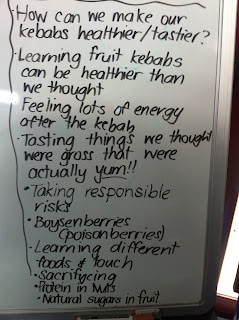 How can we make our
kebabs healthier/tastier?
· Learning fruit kebabs
can be healthier than
we thought
Feeling lots of energy
after the kebab
· Tasting things we thought
were gross that were
actually yum!!
· Taking responsible
risks
· Boysenberries
(poisonberries)
· Learning different
foods & touch
· Sacrifycing
· Protein in Nuts
· Natural sugars in fruit